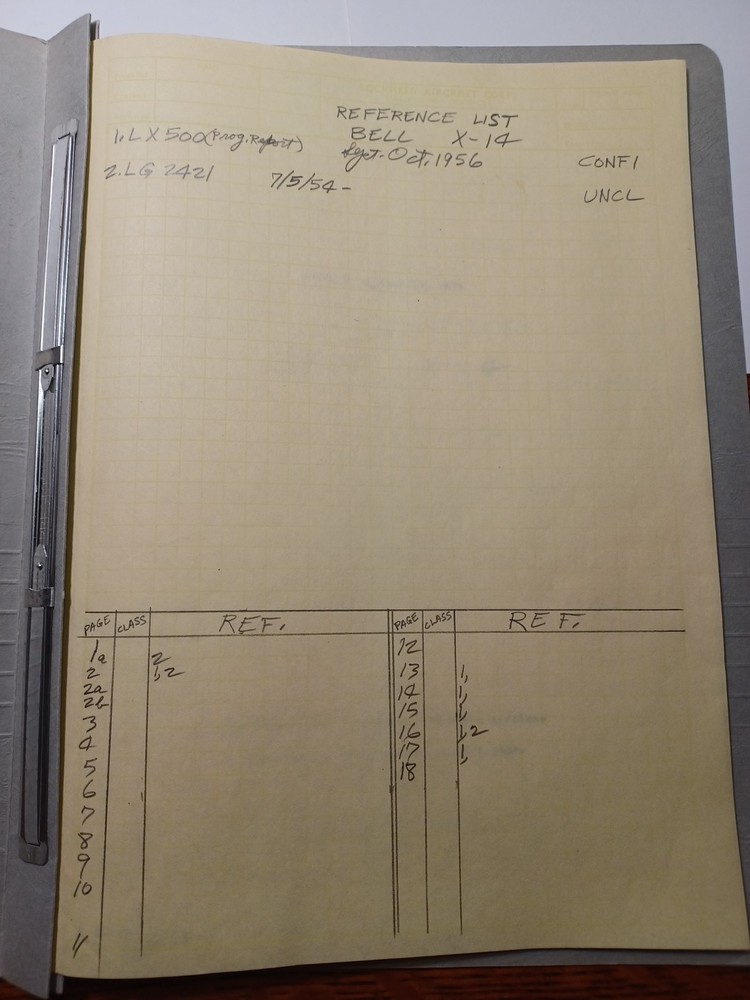 REFERENCE LIST
BELL X-14
1. LX500 (Prog. Report) Sept-Oct. 1956 CONFI
2. LG 2421 7/5/54- UNCL
PAGE CLASS REF. PAGE CLASS REF.
1 12
1a 2
2 1,2 13 1,
2a 14 1,
2b 15 1,
3 16 1,2
4 17 1,
5 18
6
7
8
9
10
11